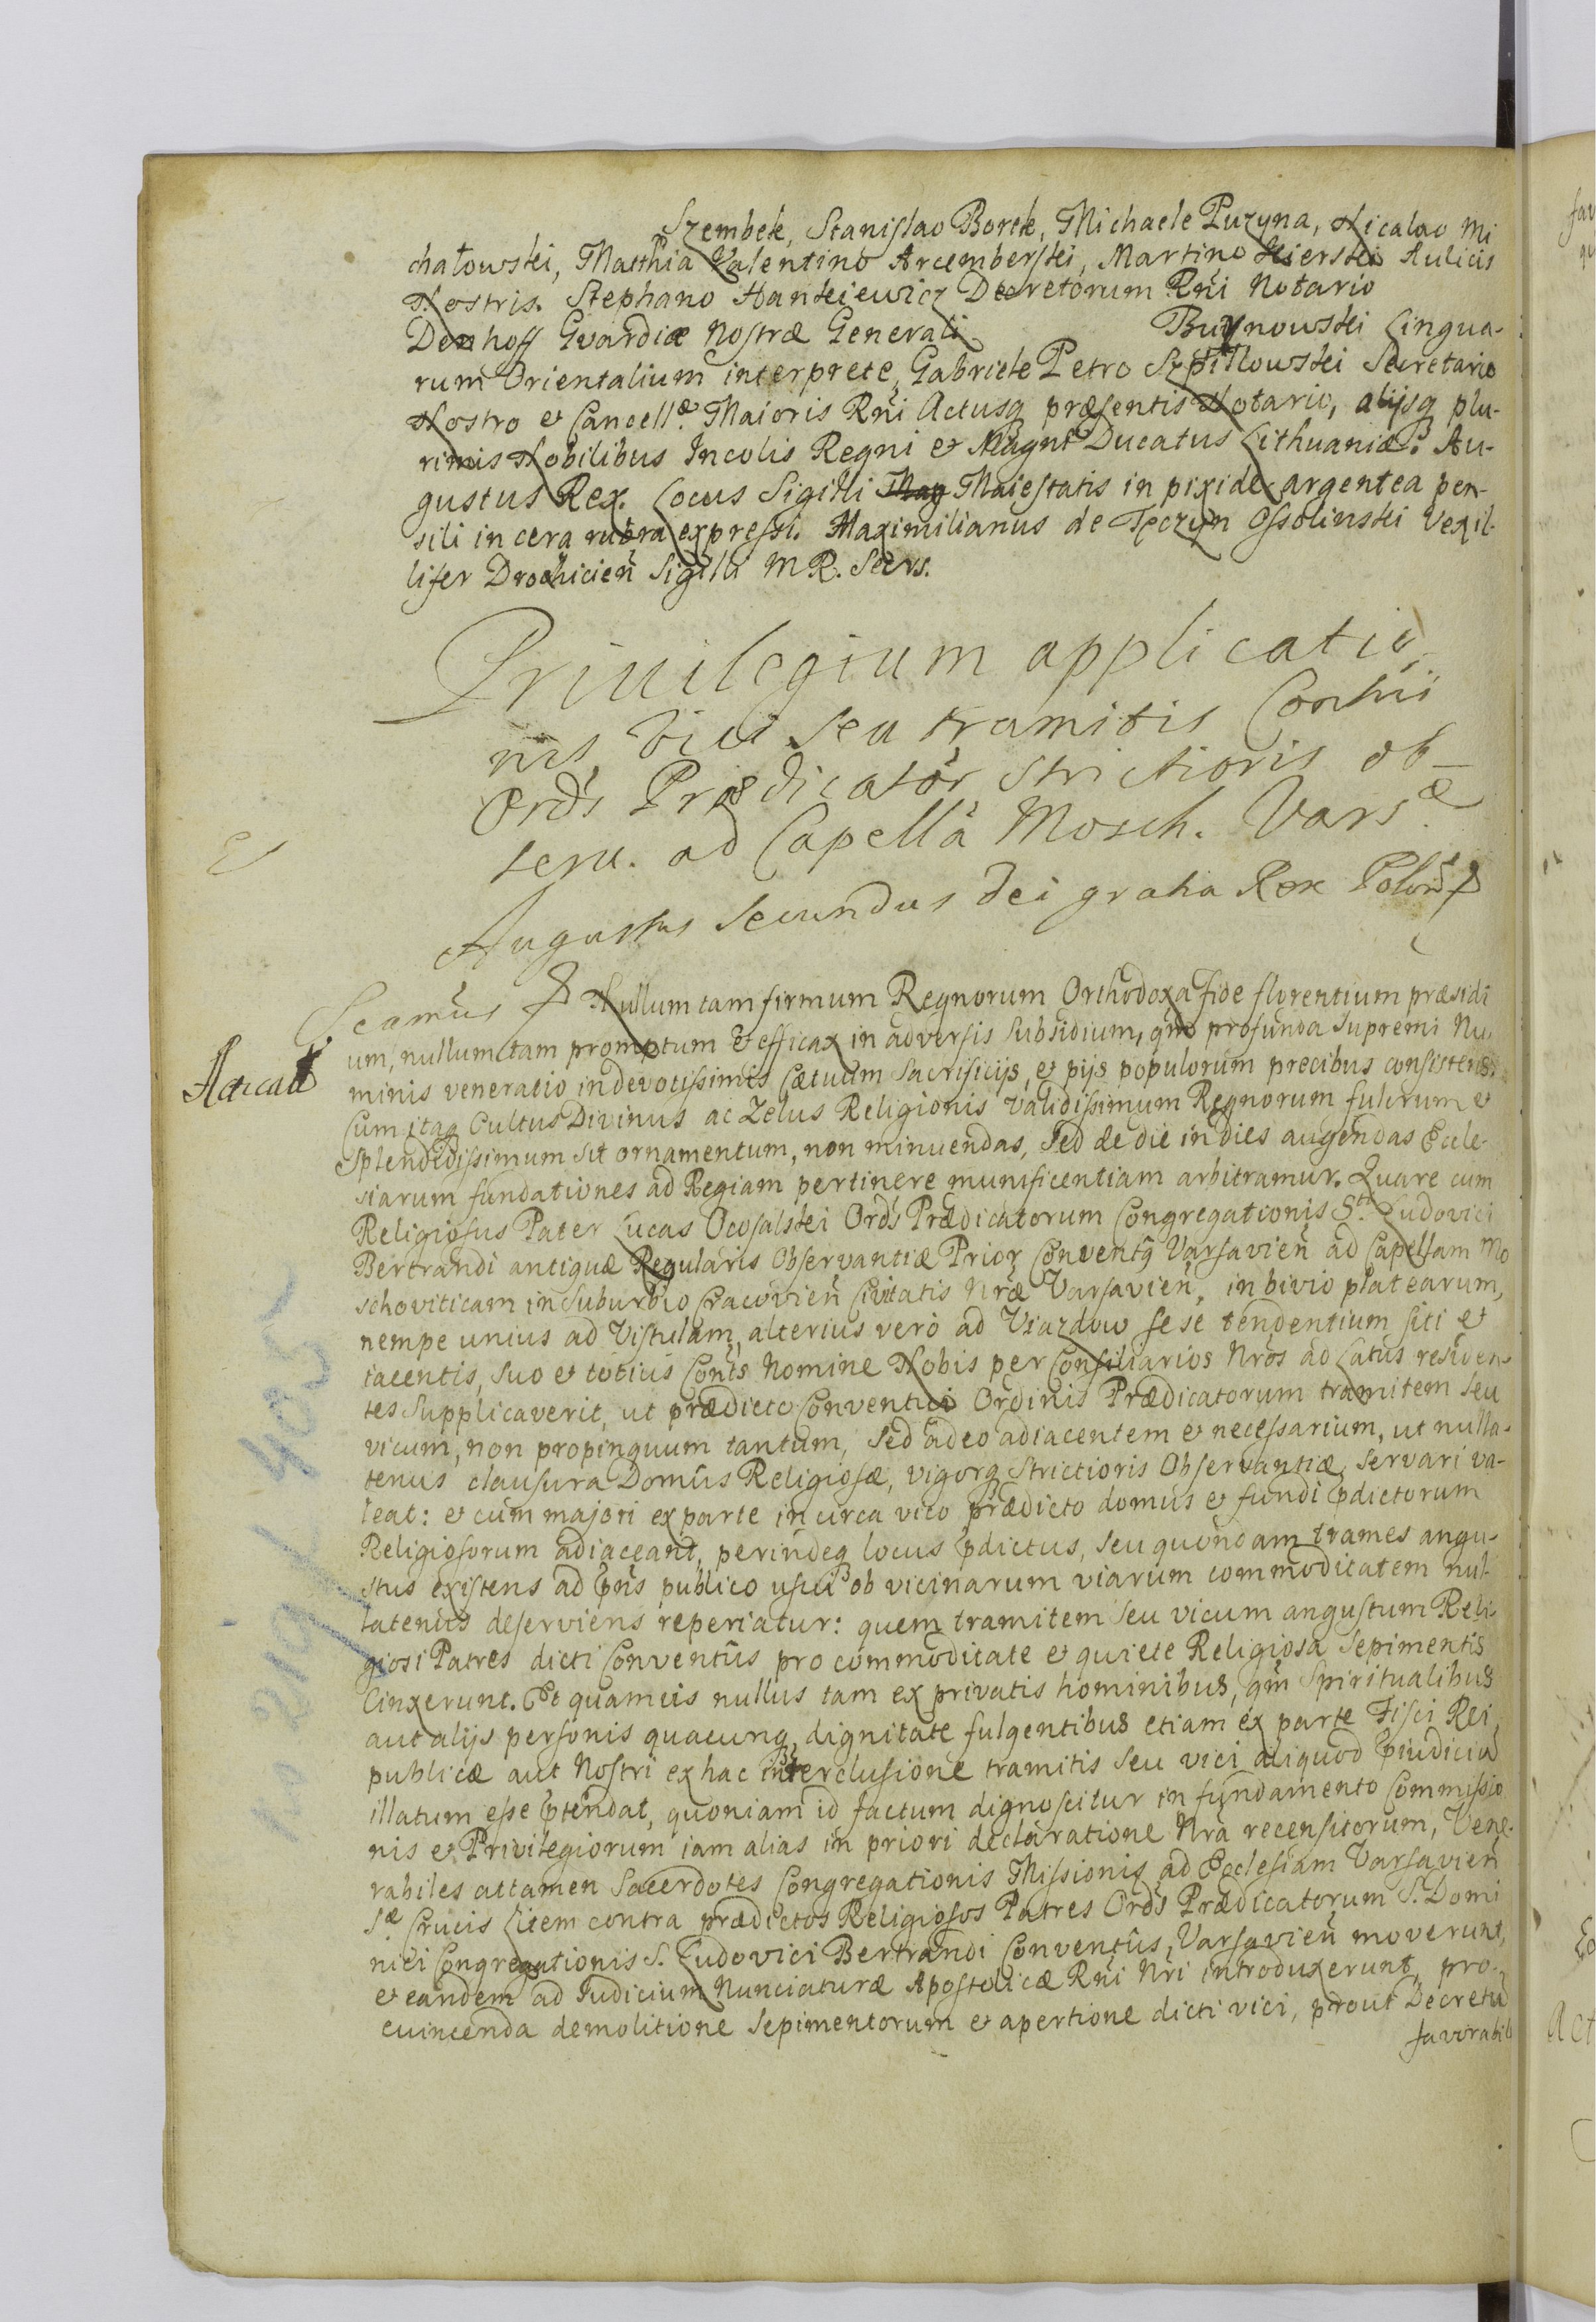 Szembek, Stanislao Borek, Michaele Puzyna, Nicalao Mi
chałowski, Matthia Valentino Arcemberski, Martino Kierski Aulicis
Nostris. Stephano Hankiewicz Decretorum Rñi Notario
Denhoff Gvardiæ Nostræ Generali Buynowski Lingua-
rum Orientalium interprete, Gabriele Petro Szpiłłowski Secretario
Nostro et Cancell.æ Maioris Rñi Actusq præsentis Notario, alijsq plu-
rimis Nobilibus Incolis Regni et Magni Ducatus Lithuaniæ. Au-
gustus Rex. Locus Sigilli Maiestatis in pixide argentea pen-
sili in cera rubra expressi. Maximilianus de Tęczyn Ossolinski Vexil-
lifer Drohicien̄ Sigilli M R. Secrs.
Priuilegium applicatio-
nis Vici seu tramitis Contui
Ords Prædicator strictioris ob-
seru. ad Capellā Mosch. Vars.æ
Augustus Secundus Dei gratia Rex Polon
Nullum tam firmum Regnorum Orthodoxa fide florentium præsidi
um, nullum tam promptum & efficax in adversis subsidium, qm profunda Supremi Nu-
Acticat
minis veneratio in devotissimis Cætuum Sacrificijs, et pijs populorum precibus consistens.
Cum itaq Cultus Divinus ac Zelus Religionis validissimum Regnorum fulcrum et
splendidissimum sit ornamentum, non minuendas, sed de die in dies augendas Eccle-
siarum fundationes ad Regiam pertinere munificentiam arbitramur. Quare cum
Religiosus Pater Lucas Ocosalski Ords Prædicatorum Congregationis S.ti Ludovici
Bertrandi antiquæ Regularis Observantiæ Prior Conventq Varsavien̄ ad Capellam Mo
schoviticam in Suburbio Cracovien̄ Civitatis Nræ Varsavien̄, in bivio platearum,
nempe unius ad Vistulam, alterius verò ad Viazdow sese tendentium siti et
iacentis, suo et totius Conts Nomine Nobis per Consiliarios Nros ad Latus residen-
tes Supplicaverit, ut prædicto Conventui Ordinis Prædicatorum tramitem seu
vicum, non propinquum tantum, sed adeo adiacentem et necessarium, ut nulla-
tenus clausura Domûs Religiosæ, vigorq strictioris Observantiæ, servari va-
leat: et cum majori ex parte in circa vico prædicto domus et fundi pdictorum
Religiosorum adiaceant, perindeq locus pdictus, seu quondam trames angu-
stus existens ad pñs publico usui ob vicinarum viarum commoditatem nul-
latenus deserviens reperiatur: quem tramitem seu vicum angustum Reli-
giosi Patres dicti Conventûs pro commoditate et quiete Religiosa Sepimentis
Cinxerunt. Et quamuis nullus tam ex privatis hominibus, qm Spiritualibus
aut alijs personis quacunq dignitate fulgentibus etiam ex parte Fisci Rei
publicæ aut Nostri ex hac interclusione tramitis seu vici aliquod piudiciū
illatum esse ptendat, quoniam id factum dignoscitur in fundamento Commissio
nis et Privilegiorum iam alias in priori declaratione Nra recensitorum, Vene-
rabiles attamen Sacerdotes Congregationis Missionis ad Ecclesiam Varsavien̄
S.æ Crucis Litem contra prædictos Religiosos Patres Ords Prædicatorum S. Domi
nici Congregationis S. Ludovici Bertrandi Conventûs, Varsavien̄ moverunt,
et eandem ad Iudicium Nunciaturæ Apostolicæ Rñi Nri introduxerunt, pro
euincenda demolitione Sepimentorum et apertione dicti vici, prout Decretū
favorabili